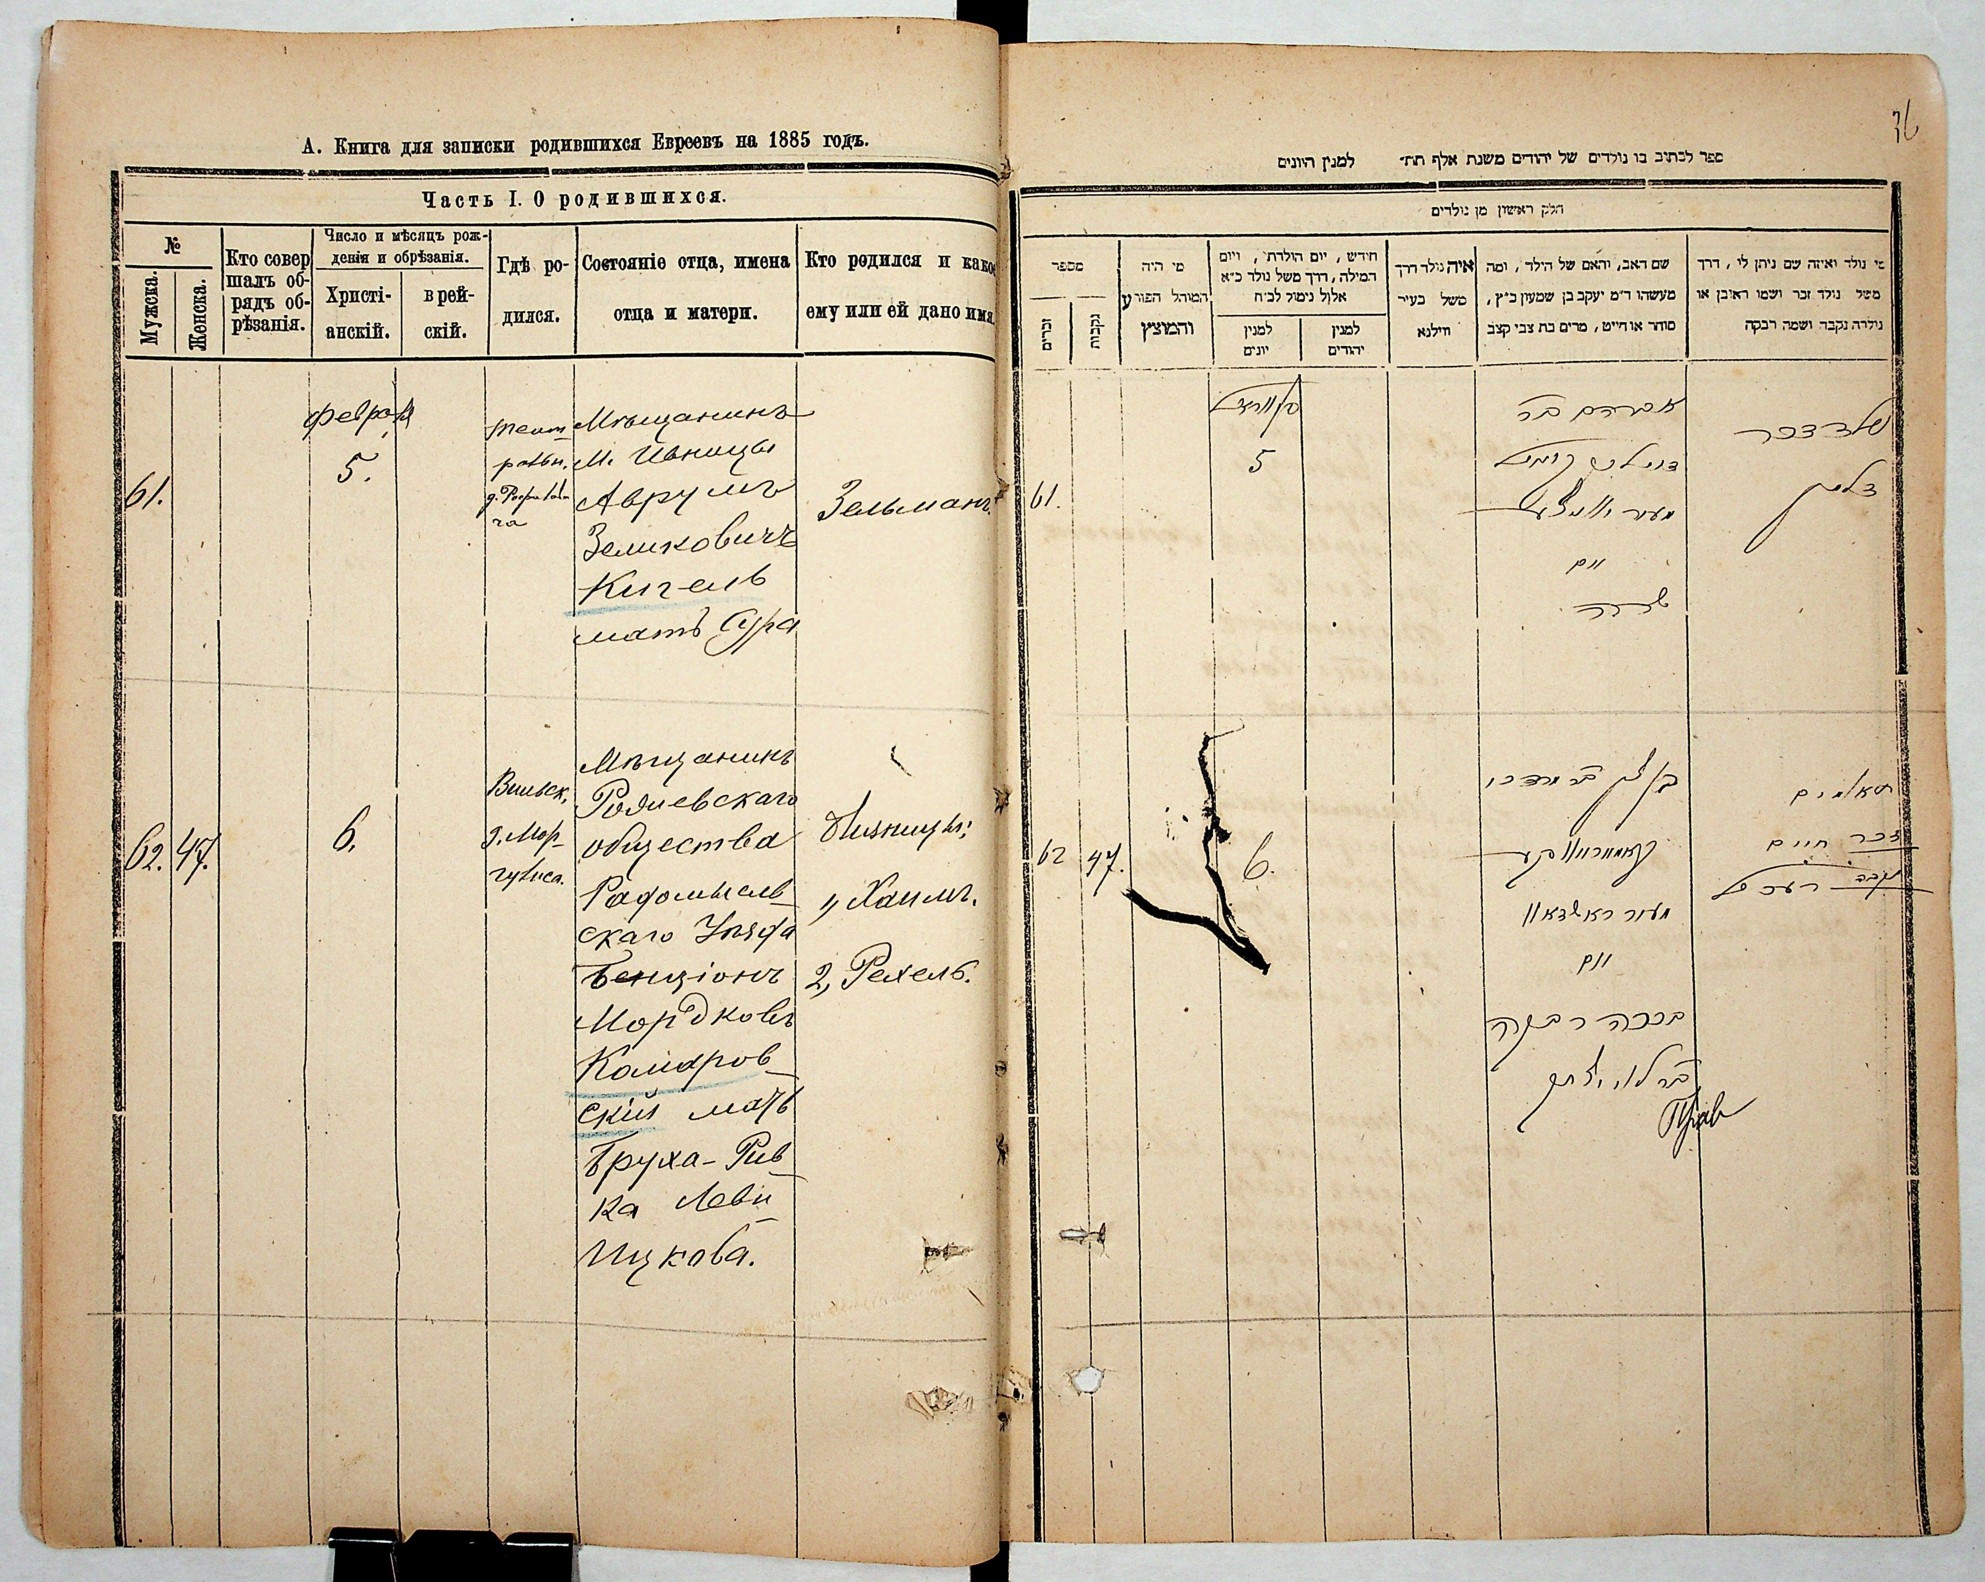 А. Книга для записки родившихся Евреевъ на 1885 годъ.
Часть I. О родившихся.
№
Мужска.
Женска.
Кто совер
шалъ об-
рядъ об-
рѣзанія.
Число и мѣсяцъ рож-
денія и обрѣзанія.
Христі-
анскій.
в рей-
скій.
Гдѣ ро-
дился.
Состояніе отца, имена
отца и матери.
Кто родился и како
ему или ей дано имя.
61.
Февраля
5.
Мѣщанинъ
м. Ивницы
Аврумъ
Зеликовичъ
Кигель
мать Сура
Зельманъ.
62. 47.
6.
Вильск.
Мѣщанинъ
общества
Радомысль
скаго Уѣзда
Бенціонъ
Мордковъ
Камаров
скій мать
Бруха-Рив
ка Леви
Ицкова.
Близнецы:
1, Хаимъ.
2, Рехель.
36
ספר לכתוב בו נולדים של יהודים משנת אלף תת״ למנין היונים
חלק ראשון מן נולדים
מספר
זכרים
נקבות
מי היה
המוהל הפורע
והמוצץ
חידש, יום הולדתו, ויום
המילה, דרך משל נולד כ״א
אלול נימול לכ״ח
למנין
יונים
למנין
יהודים
איה נולד דרך
משל בעיר
ווילנא
שם האב, והאם של הילד, ומה
מעשהו ד״מ יעקב בן שמעון כ״ץ,
סוחר או חייט, מרים בת צבי קצב
מי נולד ואיזה שם ניתן לו, דרך
משל נולד זכר ושמו ראובן או
נולדה נקבה ושמה רבקה
61.
5
אברהם בר
קיגיל
ואם
שרה
זלמן
62 47.
6.
בן ציון בר מרדכי
קאמאראווסקי
ואם
ברכה רבקה
בר לוי יצחק
תאומים
זכר חיים
נקבה רעכיל